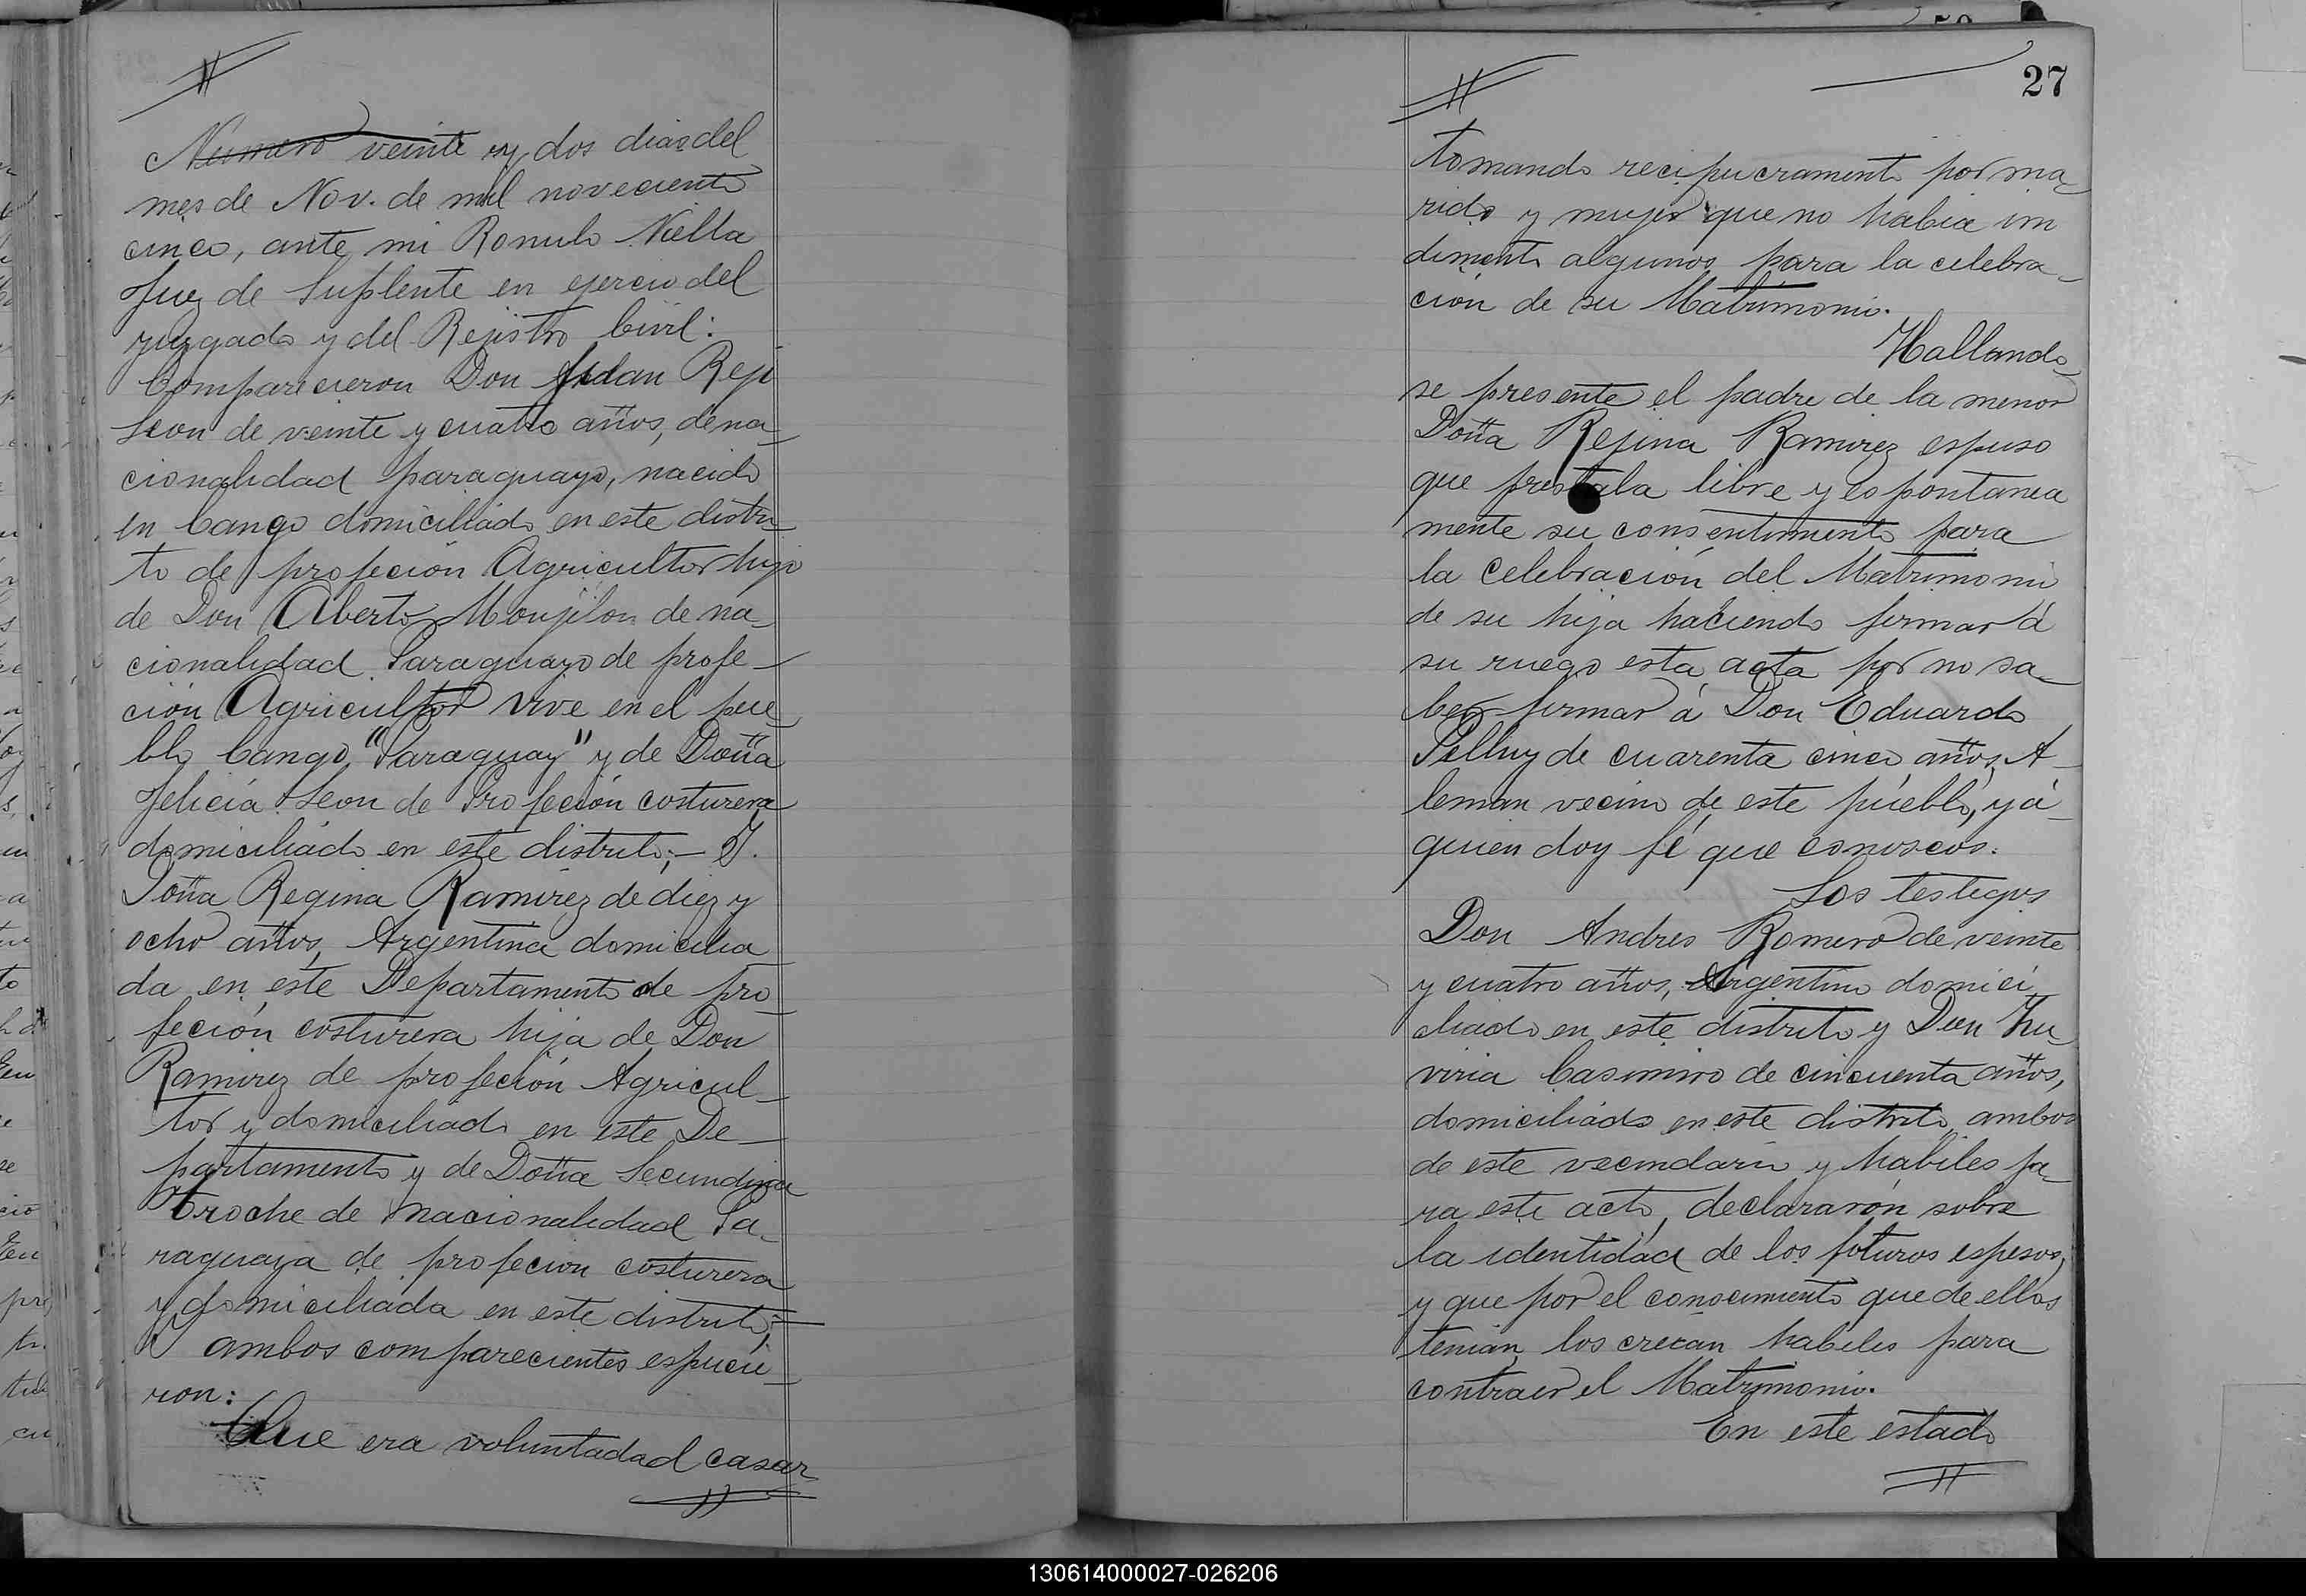 Numero veinte y dos dias del
mes de Nov. de mil noveciento
cinco, ante mi Romulo Niella
Juez de Suplente en ejercio del
juzgado y del Rejistro Civil:
Comparecieron Don
Leon de veinte y cuatro años, de na-
cionalidad paraguayo, nacido
en Cango domiciliado en este distri-
to de profeción Agricultor hijo
de Don Alberto de na-
cionalidad Paraguayo de profe-
ción Agricultor vive en el pue-
blo Cango "Paraguay" y de Doña
Felicia Leon de Profeción costurera
domiciliado en este distrito;- Y.
Doña Regina Ramirez de diez y
ocho años, Argentina domicilia
da en este Departamento de pro-
feción costurera hija de Don
Ramirez de profeción Agricul-
tor y domiciliado en este De-
partamento y de Doña Secundina
Troche de nacionalidad Pa-
raguaya de profecion costurera
y domiciliada en este distrito;=
ambos comparecientes espucie-
ron:
Que era voluntadad casar
27
tomando recipucramente por ma-
rido y mujer que no habia im
dimento algunos para la celebra-
ción de su Matrimonio.
Hallando-
se presente el padre de la menor
Doña Rejina Ramirez espuso
que prestaba libre y espontanea
mente su consentimiento para
la celebración del Matrimonio
de su hija haciendo firmar á
su ruego esta acta por no sa-
ber firmar á Don Eduardo
de cuarenta cinco años, A-
leman vecino de este pueblo, y á
quien doy fé que conoscos.
Los testigos
Don Andres Romero de veinte
y cuatro años, Argentino domici
cliado en este distrito y Don Zu-
viria Casimiro de cincuenta años,
domiciliado en este distrito, ambos
de este vecindario y habiles pa-
ra este acto, declararón sobre
la identidad de los foturos espesos,
y que por el conocimiento que de ellos
tenian, los creian habiles para
contraer el Matrimonio.
En este estado
130614000027-026206